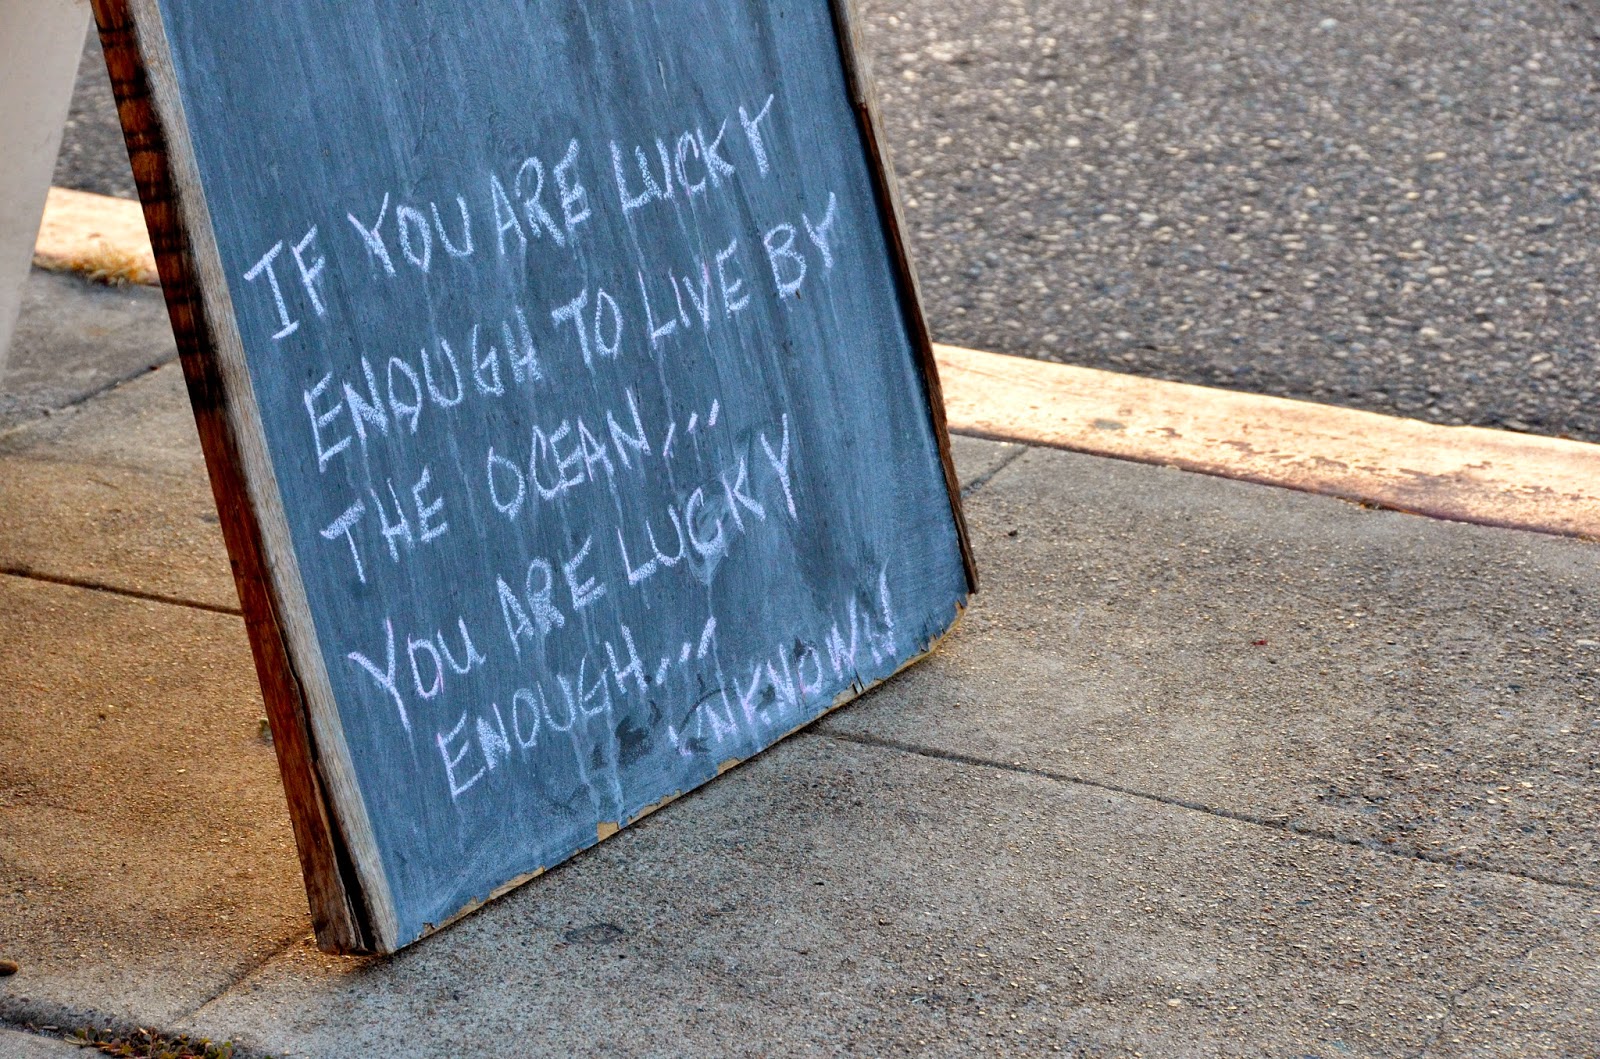 IF YOU ARE LUCKY
ENOUGH TO LIVE BY
THE OCEAN...
YOU ARE LUCKY
ENOUGH...
UNKNOWN